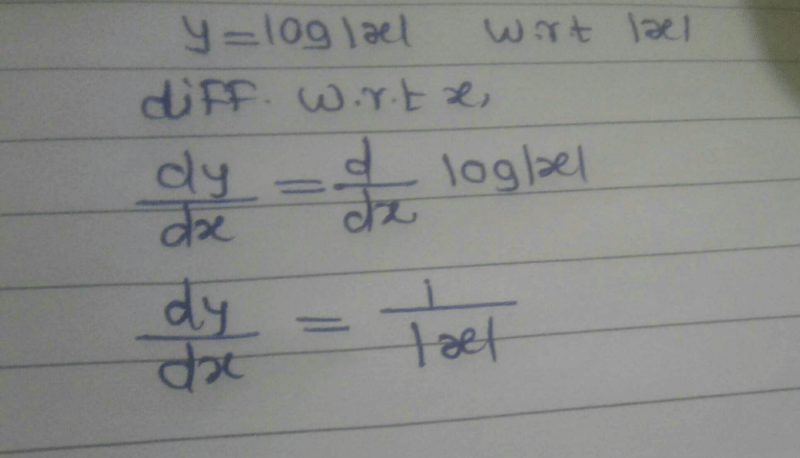 y = log|x| w.r.t |x|
diff. w.r.t x,
dy/dx = d/dx log|x|
dy/dx = 1/|x|